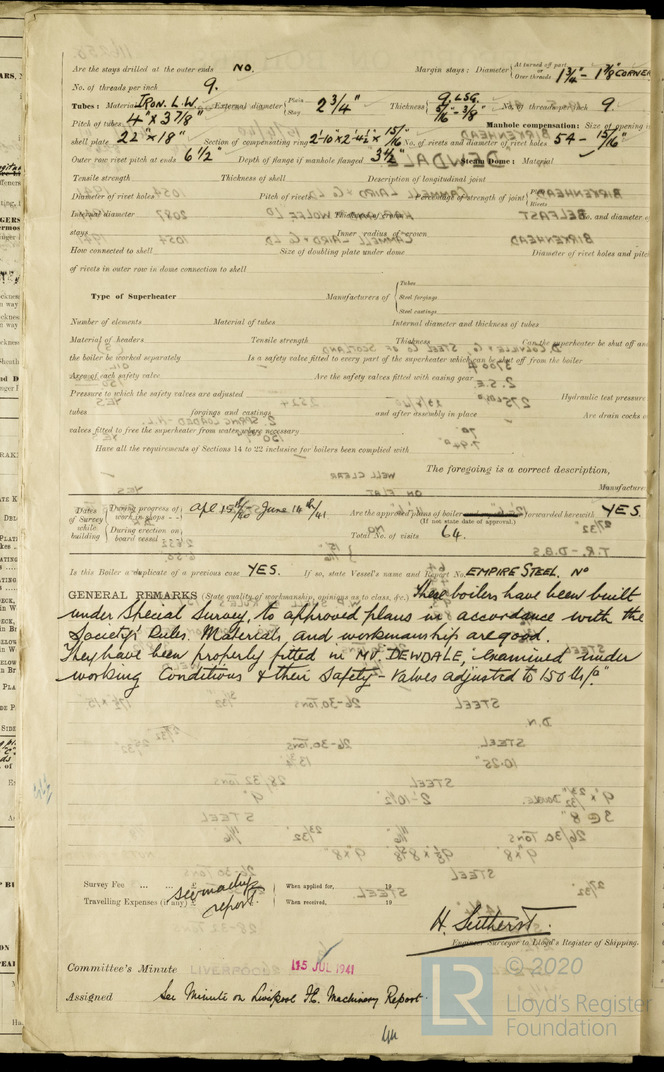 Are the stays drilled at the outer ends NO. Margin stays: Diameter { At turned off part or Over threads 1 3/4" - 1 7/8" CORNER
No. of threads per inch 9.
Tubes: Material IRON. L.W. External diameter { Plain Stay 2 3/4" Thickness { 9. LSG. 5/16" - 3/8" No. of threads per inch 9
Pitch of tubes 4" x 3 7/8" Manhole compensation: Size of opening in
shell plate 22" x 18" Section of compensating ring 2'-10 1/2 x 2'-4 1/2" x 15/16" No. of rivets and diameter of rivet holes 54 - 15/16"
Outer row rivet pitch at ends 6 1/2" Depth of flange if manhole flanged 3 1/2" Steam Dome: Material
Tensile strength Thickness of shell Description of longitudinal joint
Diameter of rivet holes Pitch of rivets Percentage of strength of joint { Plate Rivets
Internal diameter Thickness of crown No. and diameter of
stays Inner radius of crown
How connected to shell Size of doubling plate under dome Diameter of rivet holes and pitch
of rivets in outer row in dome connection to shell
Type of Superheater Manufacturers of { Tubes Steel forgings Steel castings
Number of elements Material of tubes Internal diameter and thickness of tubes
Material of headers Tensile strength Thickness Can the superheater be shut off and
the boiler be worked separately Is a safety valve fitted to every part of the superheater which can be shut off from the boiler
Area of each safety valve Are the safety valves fitted with easing gear
Pressure to which the safety valves are adjusted Hydraulic test pressure
tubes forgings and castings and after assembly in place Are drain cocks or
valves fitted to free the superheater from water where necessary
Have all the requirements of Sections 14 to 22 inclusive for boilers been complied with
The foregoing is a correct description,
Manufacturer
Dates of Survey while building { During progress of work in shops - - Apl 15th/40 - June 14th/41 Are the approved plans of boiler forwarded herewith YES.
(If not state date of approval.)
During erection on board vessel - - - Total No. of visits 64.
Is this Boiler a duplicate of a previous case YES. If so, state Vessel's name and Report No. EMPIRE STEEL. No
GENERAL REMARKS (State quality of workmanship, opinions as to class, &c.) These boilers have been built
under Special Survey, to approved plans in accordance with the
Society's Rules. Materials and workmanship are good.
They have been properly fitted in M.V. DEWDALE, examined under
working Conditions & their Safety-Valves adjusted to 150 lbs/□"
Survey Fee ... ... £ : : When applied for, 19
Travelling Expenses (if any) £ : : When received, 19
See machy report.
H. Sutherst.
Engineer Surveyor to Lloyd's Register of Shipping.
Committee's Minute LIVERPOOL 15 JUL 1941
Assigned See Minute on Liverpool F.E. Machinery Report.
© 2020
LR
Lloyd's Register
Foundation